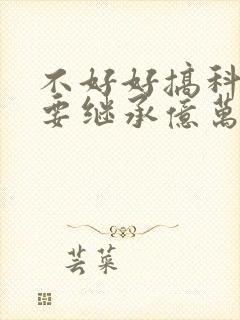 不好好搞科
要继承億萬
芸菜